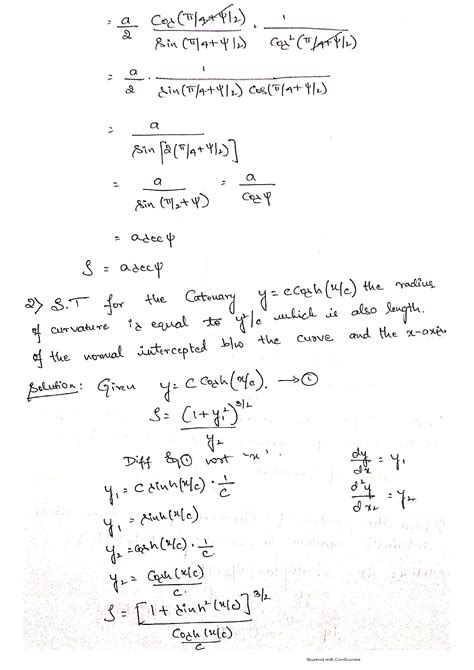 = a/2 Cos(π/4+ψ/2)/Sin(π/4+ψ/2) · 1/Cos²(π/4+ψ/2)
= a/2 · 1/Sin(π/4+ψ/2) Cos(π/4+ψ/2)
= a/Sin[2(π/4+ψ/2)]
= a/Sin(π/2+ψ) = a/Cosψ
= asecψ
ρ = asecψ
2) S.T for the Catenary y=cCosh(x/c) the radius
of curvature is equal to y²/c which is also length.
of the normal intercepted b/w the curve and the x-axis
Solution: Given y=c Cosh(x/c). → ①
ρ = (1+y₁²)^3/2 / y₂
Diff Eq① wrt 'x'.
dy/dx = y₁
y₁ = c sinh(x/c) · 1/c
d²y/dx₂ = y₂
y₁ = sinh(x/c)
y₂ = cosh(x/c) · 1/c
y₂ = Cosh(x/c)/c.
ρ = [1+sinh²(x/c)]^3/2 / Cosh(x/c)/c
Scanned with CamScanner